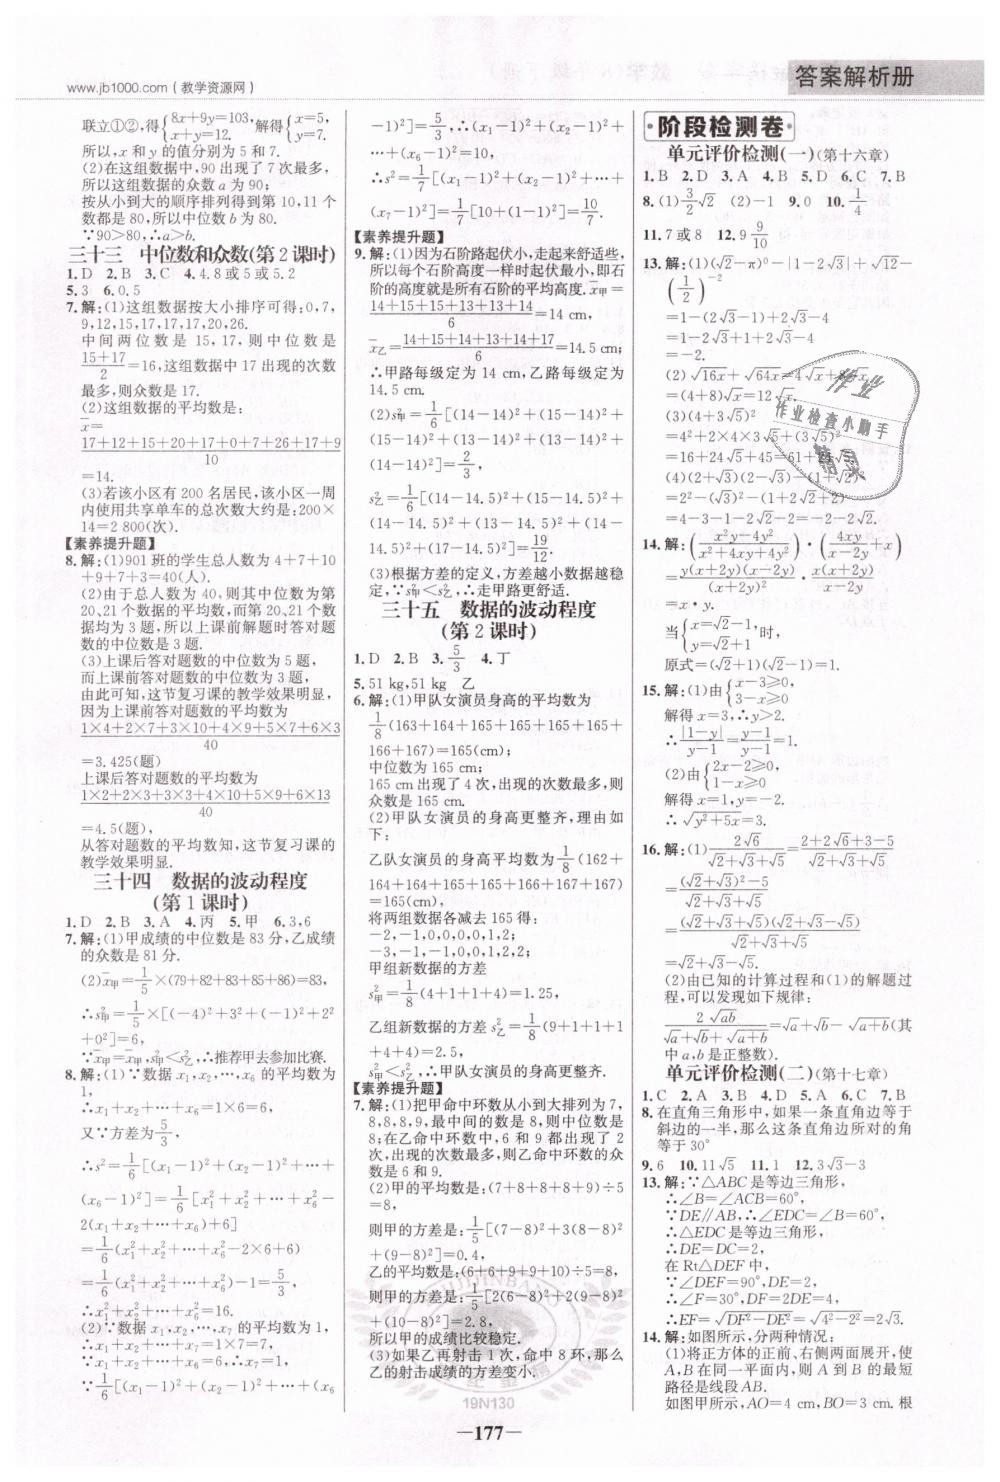 www.jb1000.com(教学资源网)
答案解析册
联立①②,得{8x+9y=103, x+y=12. 解得{x=5, y=7.
所以,x 和 y 的值分别为 5 和 7.
(2)在这组数据中,90 出现了 7 次最多,
所以这组数据的众数 a 为 90;
按从小到大的顺序排列得到第 10,11 个
数都是 80,所以中位数 b 为 80.
∵90>80,∴a>b.
三十三 中位数和众数(第 2 课时)
1.D 2.B 3.C 4.4.8 或 5 或 5.2
5.3 6.0.5
7.解:(1)这组数据按大小排序可得:0,7,
9,12,15,17,17,17,20,26.
中间两位数是 15,17,则中位数是
(15+17)/2=16,这组数据中 17 出现的次数
最多,则众数是 17.
(2)这组数据的平均数是:
x̄=
(17+12+15+20+17+0+7+26+17+9)/10
=14.
(3)若该小区有 200 名居民,该小区一周
内使用共享单车的总次数大约是:200×
14=2 800(次).
【素养提升题】
8.解:(1)901 班的学生总人数为 4+7+10
+9+7+3=40(人).
(2)由于总人数为 40,则其中位数为第
20、21 个数据的平均数,而第 20、21 个数
据均为 3 题,所以上课前解题时答对题
数的中位数是 3 题.
(3)上课后答对题数的中位数为 5 题,
而上课前答对题数的中位数为 3 题,
由此可知,这节复习课的教学效果明显,
因为上课前答对题数的平均数为
(1×4+2×7+3×10+4×9+5×7+6×3)/40
=3.425(题)
上课后答对题数的平均数为
(1×2+2×3+3×3+4×10+5×9+6×13)/40
=4.5(题),
从答对题数的平均数知,这节复习课的
教学效果明显.
三十四 数据的波动程度
(第 1 课时)
1.D 2.B 3.A 4.丙 5.甲 6.3,6
7.解:(1)甲成绩的中位数是 83 分,乙成绩
的众数是 81 分.
(2)x̄甲=1/5×(79+82+83+85+86)=83,
∴s²甲=1/5×[(-4)²+3²+(-1)²+2²
+0²]=6,
∵x̄甲=x̄甲,s²甲<s²乙,∴推荐甲去参加比赛.
8.解:(1)∵数据 x₁,x₂,…,x₆ 的平均数为
1,
∴x₁+x₂+…+x₆=1×6=6,
又∵方差为5/3,
∴s²=1/6[(x₁-1)²+(x₂-1)²+…+
(x₆-1)²]=1/6[x₁²+x₂²+…+x₆²-
2(x₁+x₂+…+x₆)+6]
=1/6(x₁²+x₂²+…+x₆²-2×6+6)
=1/6(x₁²+x₂²+…+x₆²)-1=5/3,
∴x₁²+x₂²+…+x₆²=16.
(2)∵数据 x₁,x₂,…,x₇ 的平均数为 1,
∴x₁+x₂+…+x₇=1×7=7,
∵x₁+x₂+…+x₆=6,∴x₇=1,
∵1/6[(x₁-1)²+(x₂-1)²+…+(x₆
-1)²]=5/3,∴(x₁-1)²+(x₂-1)²+
…+(x₆-1)²=10,
∴s²=1/7[(x₁-1)²+(x₂-1)²+…+
(x₇-1)²]=1/7[10+(1-1)²]=10/7.
【素养提升题】
9.解:(1)因为石阶路起伏小,走起来舒适些,
所以每个石阶高度一样时起伏最小,即石
阶的高度就是所有石阶的平均高度.x̄甲=
(14+15+15+13+13+14)/6=14 cm,
x̄乙=(14+15+14+13+14+17)/6=14.5 cm.
∴甲路每级定为 14 cm,乙路每级定为
14.5 cm.
(2)s²甲=1/6[(14-14)²+(15-14)²+
(15-14)²+(13-14)²+(13-14)²+
(14-14)²]=2/3,
s²乙=1/6[(14-14.5)²+(15-14.5)²+
(14-14.5)²+(13-14.5)²+(14-
14.5)²+(17-14.5)²]=19/12.
(3)根据方差的定义,方差越小数据越稳
定,∵s²甲<s²乙,∴走甲路更舒适.
三十五 数据的波动程度
(第 2 课时)
1.D 2.B 3.5/3 4.丁
5.51 kg,51 kg 乙
6.解:(1)甲队女演员身高的平均数为
1/8(163+164+165+165+165+165+
166+167)=165(cm);
中位数为 165 cm;
165 cm 出现了 4 次,出现的次数最多,则
众数是 165 cm.
(2)甲队女演员的身高更整齐,理由如
下:
乙队女演员的身高平均数为1/8(162+
164+164+165+166+165+167+167)
=165(cm),
将两组数据各减去 165 得:
-2,-1,0,0,0,0,1,2;
-3,-1,-1,0,0,1,2,2;
甲组新数据的方差
s²甲=1/8(4+1+1+4)=1.25,
乙组新数据的方差 s²乙=1/8(9+1+1+1
+4+4)=2.5,
s²甲<s²乙,∴甲队女演员的身高更整齐.
【素养提升题】
7.解:(1)把甲命中环数从小到大排列为 7,
8,8,8,9,最中间的数是 8,则中位数是
8;在乙命中环数中,6 和 9 都出现了 2
次,出现的次数最多,则乙命中环数的众
数是 6 和 9.
(2)甲的平均数是:(7+8+8+8+9)÷5
=8,
则甲的方差是:1/5[(7-8)²+3(8-8)²
+(9-8)²]=0.4,
乙的平均数是:(6+6+9+9+10)÷5=8,
则甲的方差是:1/5[2(6-8)²+2(9-8)²
+(10-8)²]=2.8,
所以甲的成绩比较稳定.
(3)如果乙再射击 1 次,命中 8 环,那么
乙的射击成绩的方差变小.
19N130
阶段检测卷
单元评价检测(一)(第十六章)
1.B 2.D 3.A 4.B 5.D 6.C 7.B
8.(1)3/2√2 (2)-1 9.0 10.1/4
11.7 或 8 12.9 9/10
13.解:(1)(√2-π)⁰-|1-2√3|+√12-
(1/2)⁻²
=1-(2√3-1)+2√3-4
=1-2√3+1+2√3-4
=-2.
(2)√16x+√64x=4√x+8√x
=(4+8)√x=12√x.
(3)(4+3√5)²
=4²+2×4×3√5+(3√5)²
=16+24√5+45=61+24√5.
(4)(2+√3)(2-√3)-(1+√2)²
=2²-(√3)²-(1+2√2+2)
=4-3-1-2√2-2=-2-2√2.
14.解:(x²y-4y²)/(x²+4xy+4y²)·(4xy/(x-2y)+x)
=y(x+2y)(x-2y)/(x+2y)²·x(x+2y)/(x-2y)
=x·y.
当{x=√2-1, y=√2+1 时,
原式=(√2+1)(√2-1)=1.
15.解:(1)由{x-3⩾0, 3-x⩾0
解得 x=3,∴y>2.
∴|1-y|/(y-1)=(y-1)/(y-1)=1.
(2)由{2x-2⩾0, 1-x⩾0
解得 x=1,y=-2.
∴√(y²+5x)=3.
16.解:(1)2√6/(√2+√3+√5)=(2+2√6+3-5)/(√2+√3+√5)
=((√2+√3)²-5)/(√2+√3+√5)
=(√2+√3+√5)(√2+√3-√5)/(√2+√3+√5)
=√2+√3-√5.
(2)由已知的计算过程和(1)的解题过
程,可以发现如下规律:
2√ab/(√a+√b+√(a+b))=√a+√b-√(a+b)(其
中 a,b 是正整数).
单元评价检测(二)(第十七章)
1.C 2.A 3.B 4.B 5.A 6.C 7.B
8.在直角三角形中,如果一条直角边等于
斜边的一半,那么这条直角边所对的角
等于 30°
9.6 10.11√5 11.1 12.3√3-3
13.解:∵△ABC 是等边三角形,
∴∠B=∠ACB=60°,
∵DE∥AB,∴∠EDC=∠B=60°,
∴△EDC 是等边三角形,
∴DE=DC=2,
在 Rt△DEF 中,
∵∠DEF=90°,DE=2,
∴∠F=30°,DF=2DE=4,
∴EF=√(DF²-DE²)=√(4²-2²)=2√3
14.解:如图所示,分两种情况:
(1)将正方体的正前、右侧两面展开,使
其在同一平面内,则 A 到 B 的最短
路径是线段 AB.
如图甲所示,AO=4 cm,BO=3 cm. 根
作业
作业检查小助手
—177—